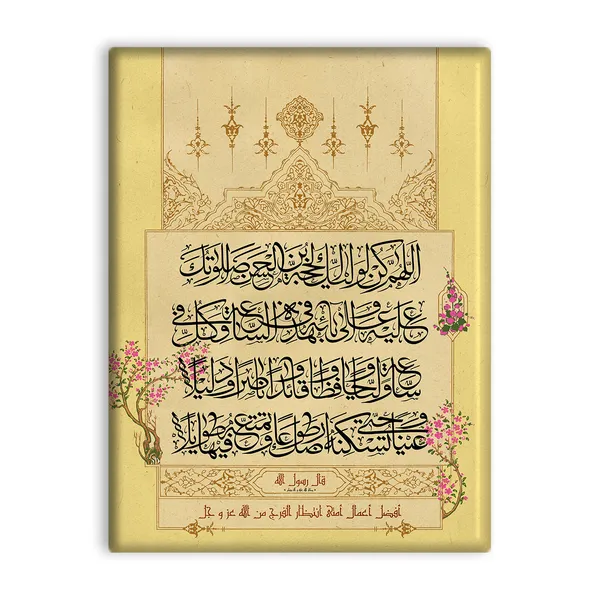 اللهم كن لوليك الحجة بن الحسن صلواتك
عليه وعلى آبائه في هذه الساعة وفي كل
ساعة وليا وحافظا وقائدا وناصرا ودليلا
وعينا حتى تسكنه أرضك طوعا وتمتعه فيها طويلا
قال رسول الله
أفضل أعمال أمتی انتظار الفرج من الله عز و جل